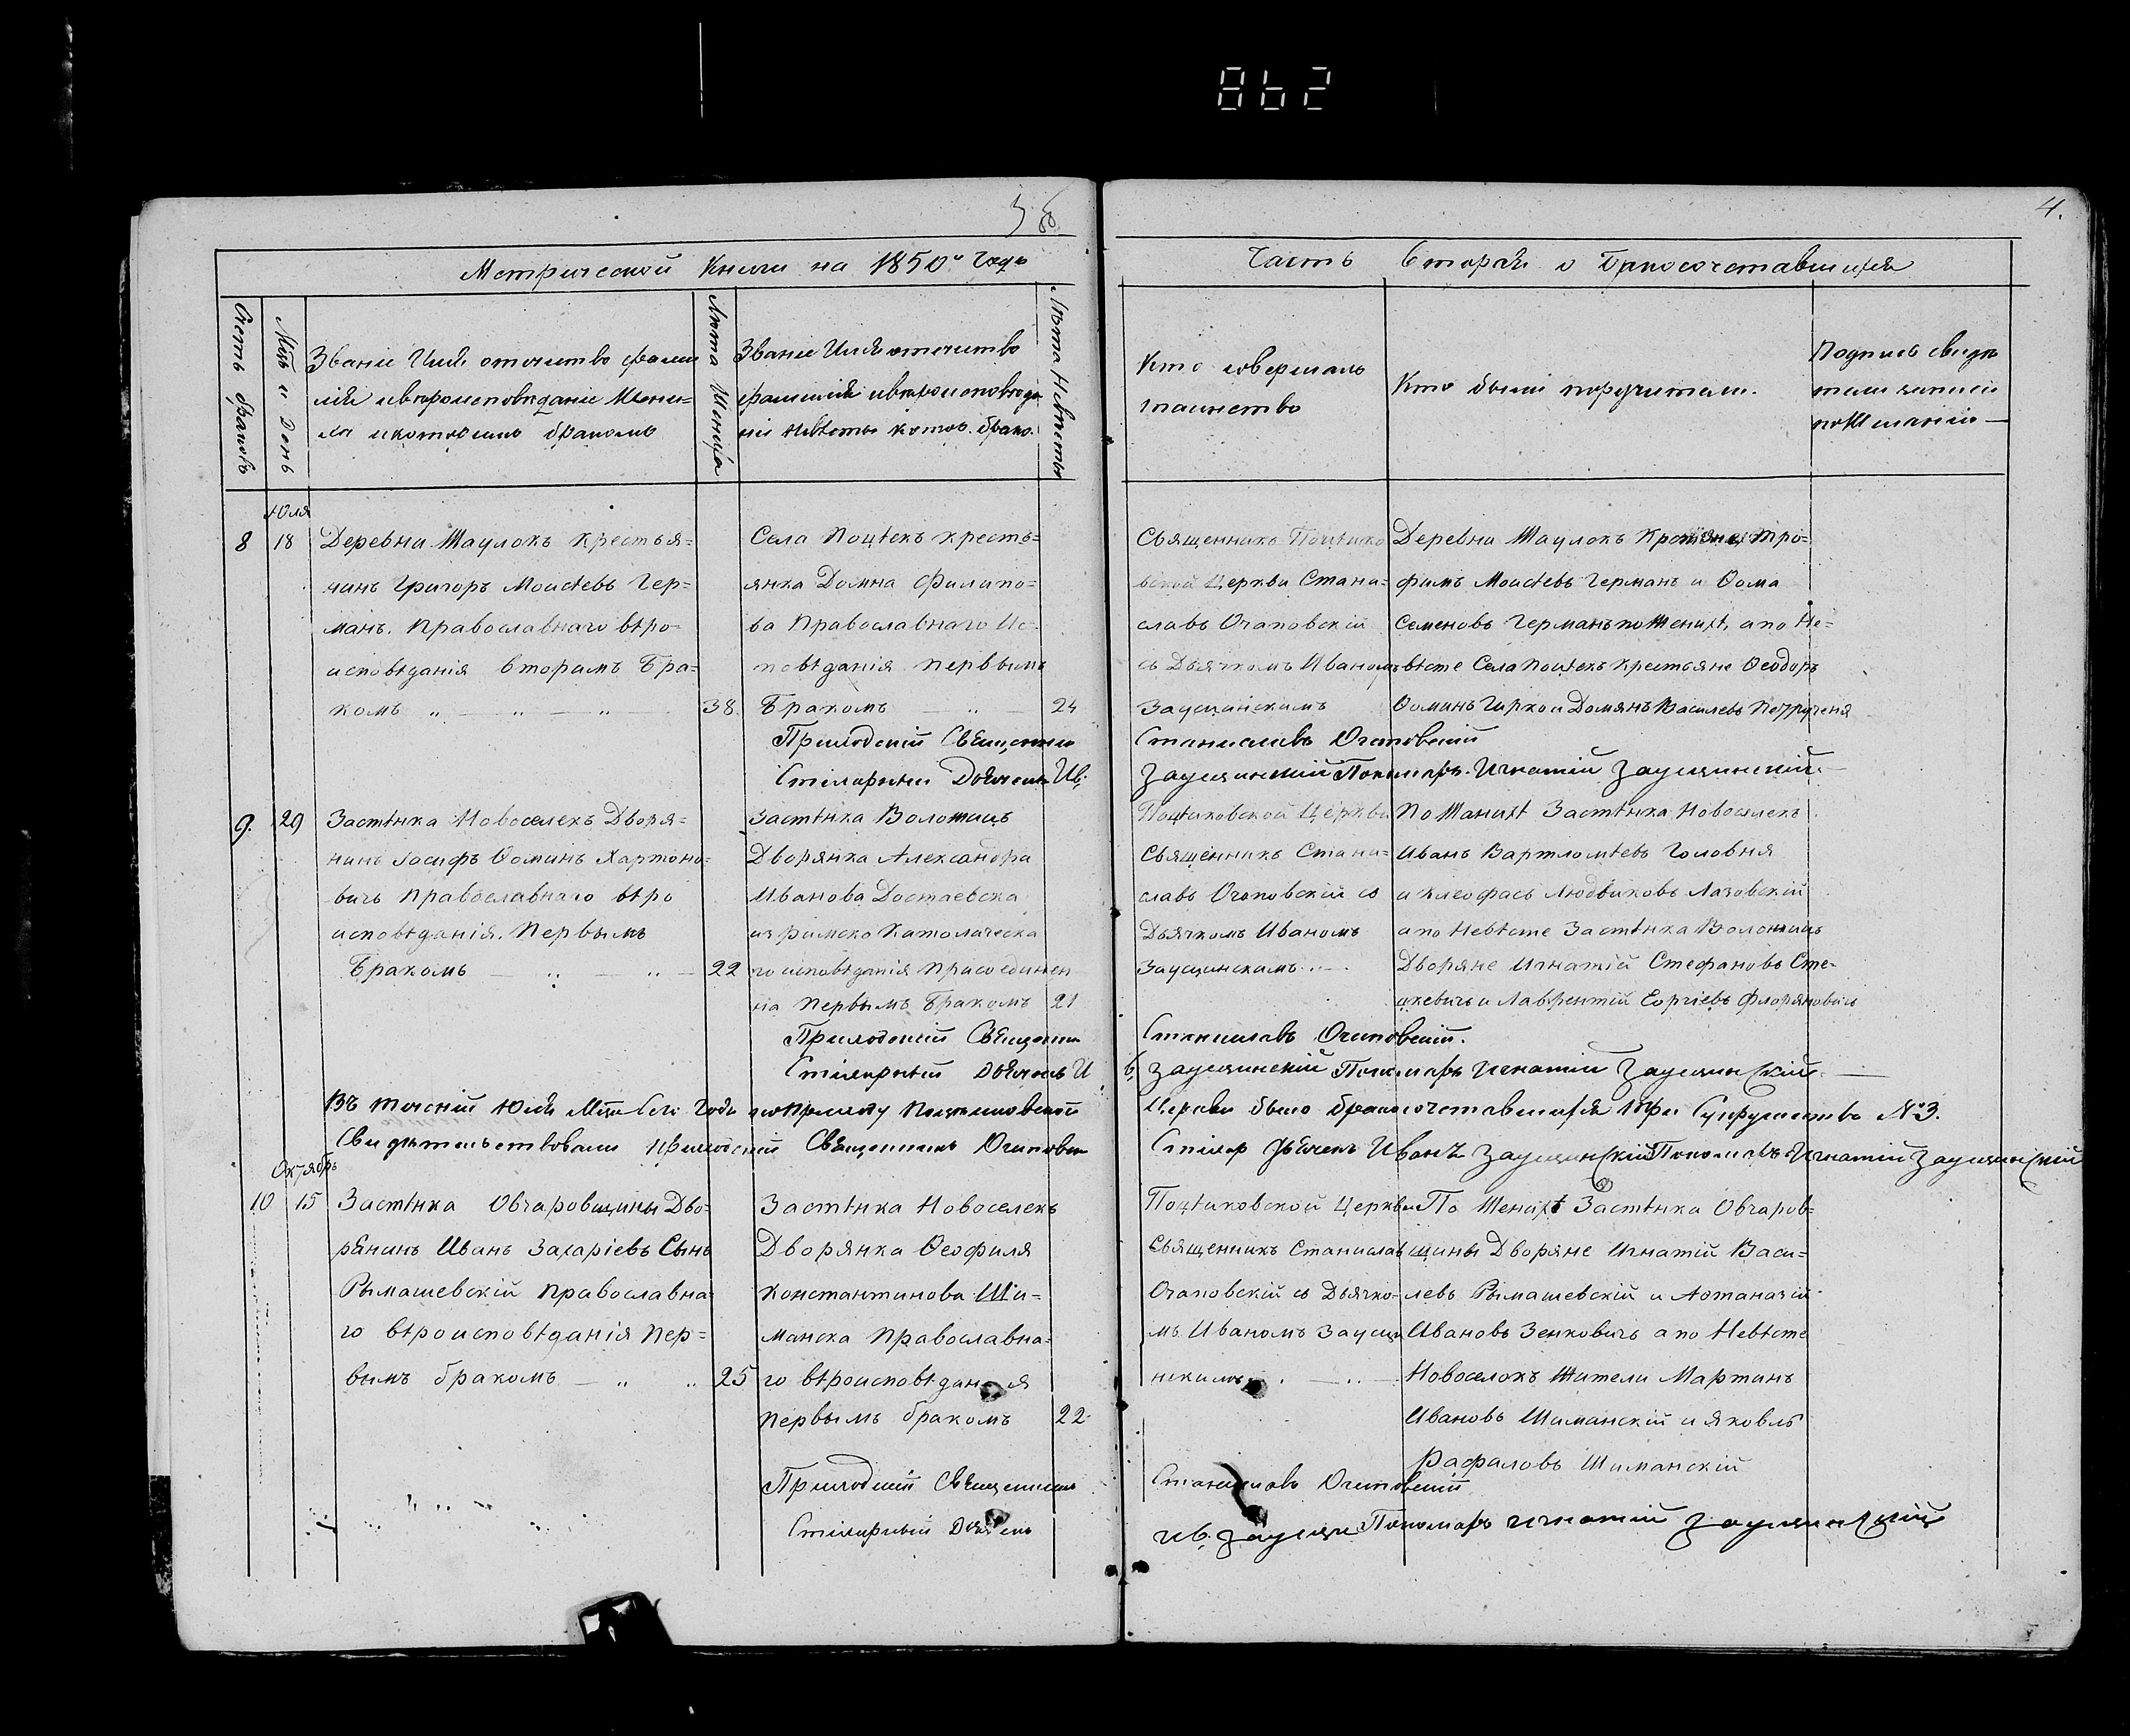 862
3 об.
4.
Метрической Книги на 1850й Годъ
Часть Вторая о Бракосочетавшихся
Счетъ браковъ
Мѣс. и День
Званіе Имя отечество фами
лія и вѣроисповѣданіе Жени=
ха и которымъ бракомъ
Лѣта Жениха
Званіе Имя отечество
фамилія и вѣроисповѣда
ніе Невѣсты котор. брако.
Лѣта Невѣсты
Кто совершалъ
таинство
Кто были поручители.
Подпись свидѣ
тели записи
по желанію
Юля
8 18
Деревни Жаулокъ Крестья=
нинъ Григоръ Моисѣевъ Гер=
манъ. Православнаго вѣро-
исповѣданія вторымъ Бра=
комъ 38.
Села Поцѣекъ кресть=
янка Домна Филипо=
ва Православнаго Ис-
повѣданія первымъ
Бракомъ 24
Приходскій Священни
Стіхарный Дьячекъ Ив.
Священникъ Поцѣико
вской Церкви Стани=
славъ Очаповскій
съ Дьячкомъ Иваномъ
Заусцинскимъ
Деревни Жаулокъ Крестьяне Тро=
фимъ Моисѣевъ Германъ и Ѳома
Семеновъ Германъ по Женихѣ, а по Не=
вѣсте Села Поцѣекъ крестьяне Ѳеодоръ
Ѳоминъ Гирко и Домянъ Василевъ
Станиславъ Очаповскій
Заусцинскій Пономарь Игнатій Заусцинскій.
9. 29
Застѣнка Новоселекъ Дворя=
нинъ Іосифъ Ѳоминъ Харитоно=
вичъ Православнаго вѣро
исповѣданія. Первымъ
Бракомъ 22
Застѣнка Воложицъ
Дворянка Александра
Иванова Достаевска
из римско Католическа
го исповѣданія присоединен
на Первымъ Бракомъ 21
Приходскій Священни
Стіхарный Дьячекъ И
Поцѣиковской Церкви
Священникъ Стани=
славъ Очаповскій со
Дьячкомъ Иваномъ
Заусцинскимъ
По Жанихѣ Застѣнка Новоселекъ
Иванъ Вартломѣевъ Головня
и Клеофасъ Людвиковъ Лазовскій
а по Невѣсте Застѣнка Воложицъ
Дворяне Игнатій Стефановъ Сте-
цкевичъ и Лаврентій Еоргіевъ Флоряновичъ
Станиславъ Очаповскій.
в. Заусцинскій Пономарь Игнатій Заусцинскій.
Въ теченій Юля Мѣс. Сего Года по Приходу Поцѣиковской
Церкви было бракосочетавшихся Три Супружества №3.
Свидѣтельствовали Приходскій Священникъ Очаповски
Стіхар Дьячекъ Иванъ Заусцинскій Пономарь Игнатій Заусцинскій
Октябрь
10 15
Застѣнка Овчаровщины Дво=
рянинъ Иванъ Захаріевъ Сынъ
Рымашевскій Православна=
го вѣроисповѣданія Пер=
вымъ бракомъ 25
Застѣнка Новоселекъ
Дворянка Ѳеофиля
Константинова Ши=
манска Православна=
го вѣроисповѣданія
первымъ бракомъ 22.
Приходскій Священникъ
Стіхарный Дьячекъ
Поцѣиковской Церкви
Священникъ Станислав
Очаповскій со Дьячко-
мъ Иваномъ Заусци
нскимъ
По Женихѣ Застѣнка Овчаров=
щины Дворяне Игнатій Васи=
левъ Рымашевскій и Аѳанагій
Ивановъ Зенковичъ а по Невѣсте
Новоселокъ Жители Мартинъ
Ивановъ Шиманскій и Яковлъ
Рафаловъ Шиманскій
Станиславъ Очаповскій
Ив. Заусци Пономарь Игнатій Заусцинскій